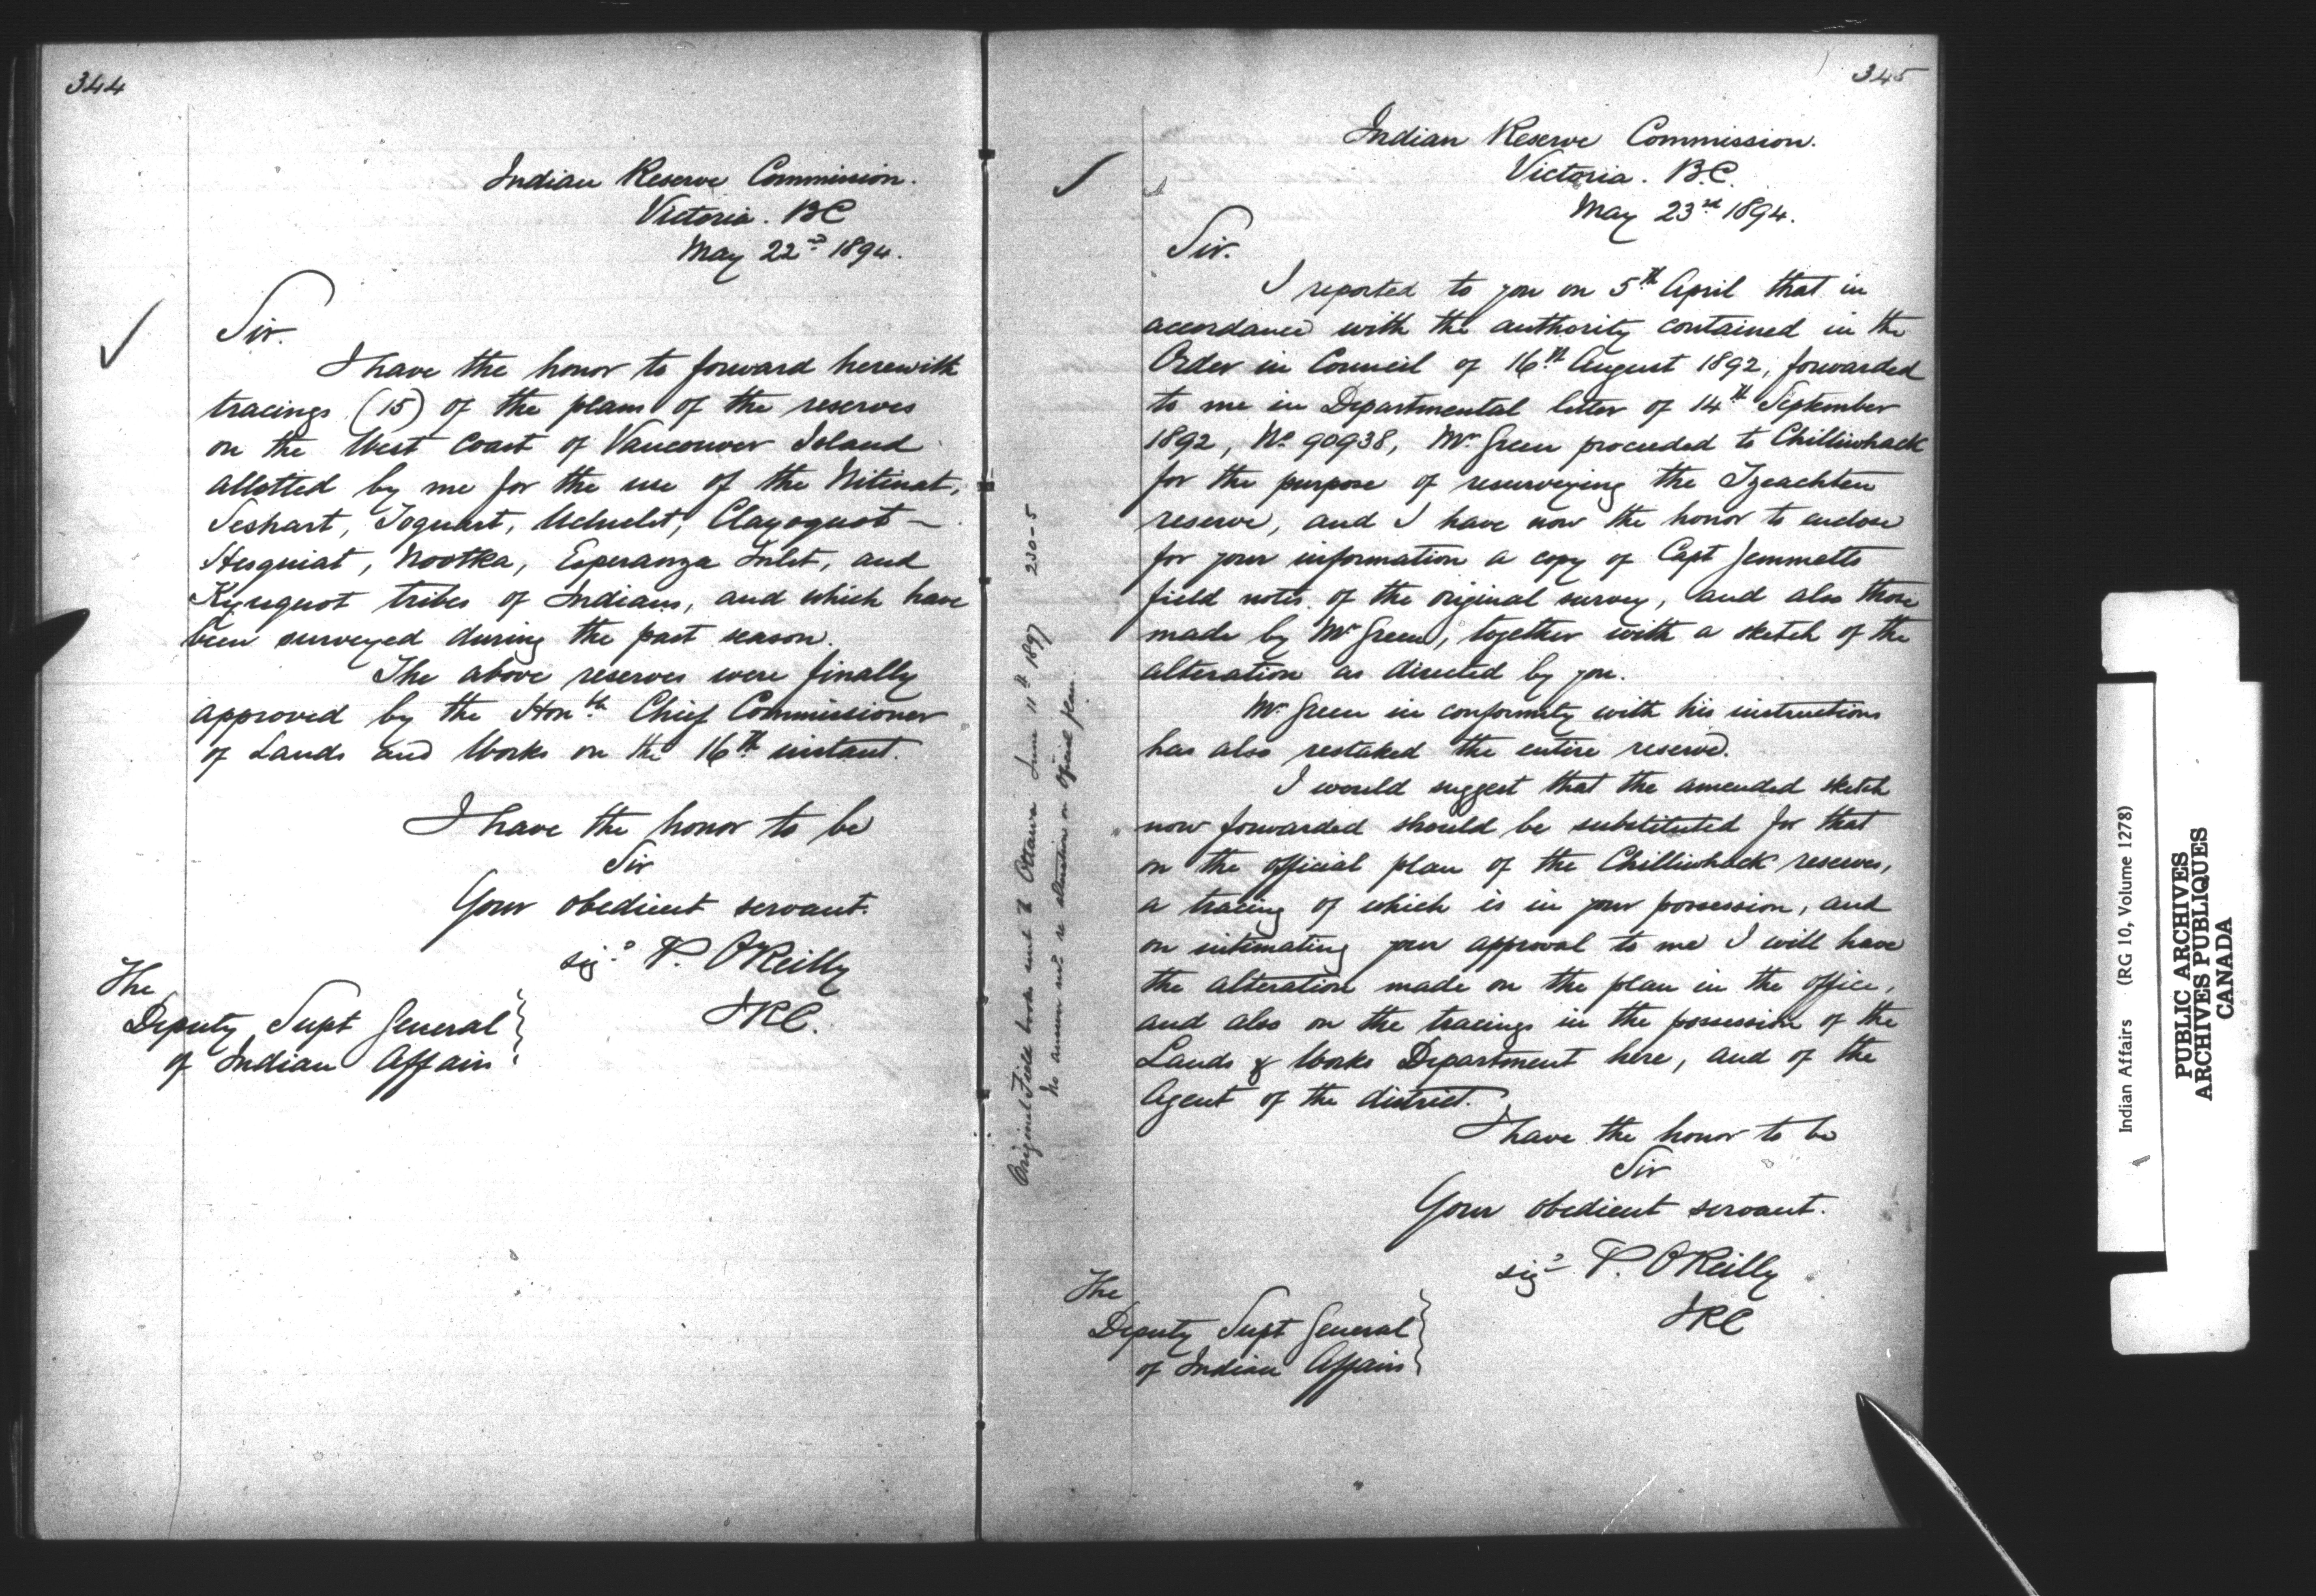 344
Indian Reserve Commission.
Victoria. BC
May 22nd 1894.
Sir.
I have the honor to forward herewith
tracings (15) of the plans of the reserves
on the West Coast of Vancouver Island
allotted by me for the use of the Nitinat,
Seshart, Toquart, Ucluelet, Clayoquot –
Hesquiat, Nootka, Esperanza Inlet, and
Kyuquot tribes of Indians, and which have
been surveyed during the past season.
The above reserves were finally
approved by the Honble. Chief Commissioner
of Lands and Works on the 16th instant.
I have the honor to be
Sir
Your obedient servant.
sigd. P. O'Reilly
IRC.
The
Deputy Supt General
of Indian Affairs
345
Indian Reserve Commission.
Victoria. B.C.
May 23rd 1894.
Sir.
I reported to you on 5th April that in
accordance with the authority contained in the
Order in Council of 16th August 1892, forwarded
to me in Departmental letter of 14th September
1892, No 90938, Mr Green proceeded to Chilliwhack
for the purpose of resurveying the Tzeachten
reserve, and I have now the honor to enclose
for your information a copy of Capt Jemmetts
field notes of the original survey, and also those
made by Mr Green, together with a sketch of the
alteration as directed by you.
Mr Green in conformity with his instructions
has also restaked the entire reserve.
I would suggest that the amended sketch
now forwarded should be substituted for that
on the official plan of the Chilliwhack reserves,
a tracing of which is in your possession, and
on intimating your approval to me I will have
the alteration made on the plan in the office,
and also on the tracings in the possession of the
Lands & Works Department here, and of the
Agent of the district.
I have the honor to be
Sir
Your obedient servant.
sigd P. O'Reilly
IRC
The
Deputy Supt General
of Indian Affairs
Original Field book sent to Ottawa June 11th 1897 230-5
No answer re alteration on Official plan.
Indian Affairs (RG 10, Volume 1278)
PUBLIC ARCHIVES
ARCHIVES PUBLIQUES
CANADA